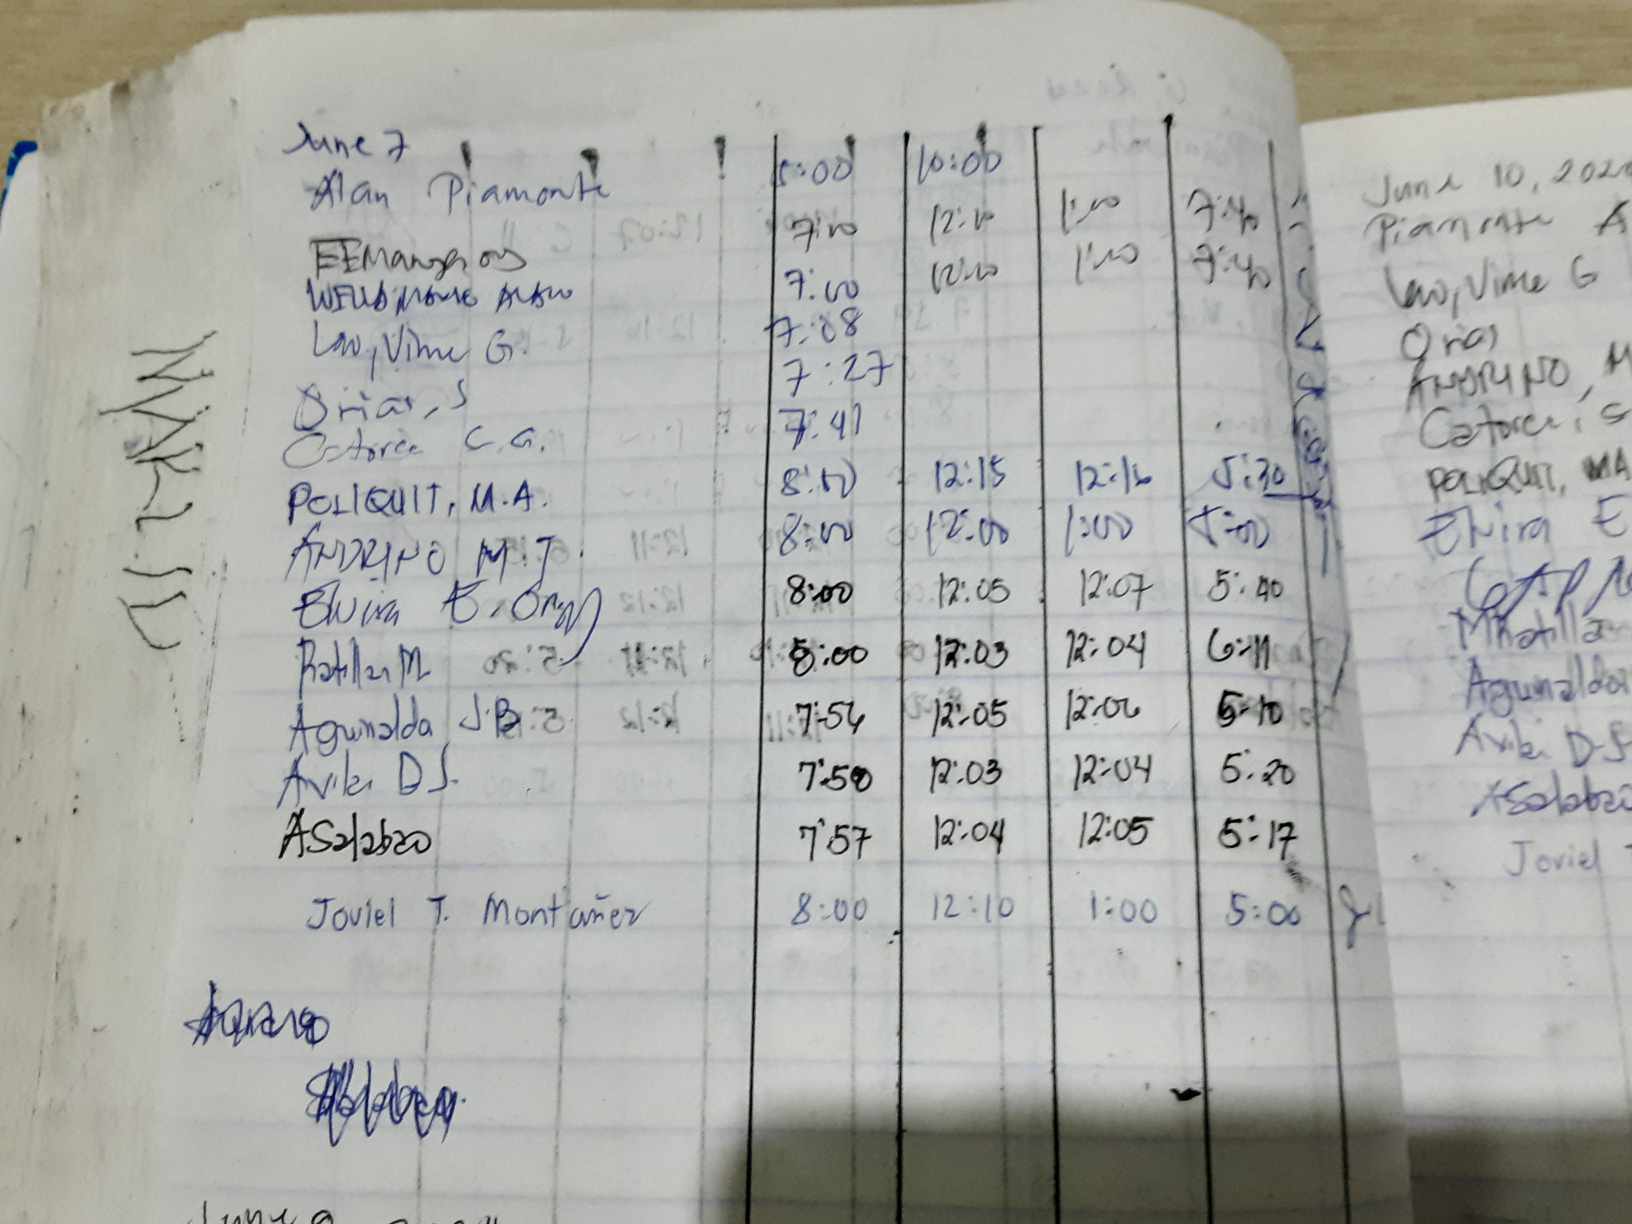 June 7
Alan Piamonte 5:00 10:00
7:00 12:10 1:00 7:40
7:00 12:10 1:00 7:40
Lao, Vime G. 7:08
Orias, S 7:27
Catorce C.G. 7:41
POLIQUIT, M.A. 8:00 12:15 12:16 5:30
ANDRINO M.J. 8:00 12:00 1:00 5:00
Elvira E. 8:00 12:05 12:07 5:40
Ratilla M. 8:00 12:03 12:04 6:11
Agunalda J.B 7:54 12:05 12:06 5:10
Avila D.S. 7:50 12:03 12:04 5:20
ASalabao 7:57 12:04 12:05 5:17
Joviel T. Montañez 8:00 12:10 1:00 5:00
June 9
June 10, 202
Piamonte A
Lao, Vime G
Orias
ANDRINO, M
Catorce, S
POLIQUIT, MA
Elvira E
MRatilla
Agunalda
Avila D.S
ASalabao
Joviel T